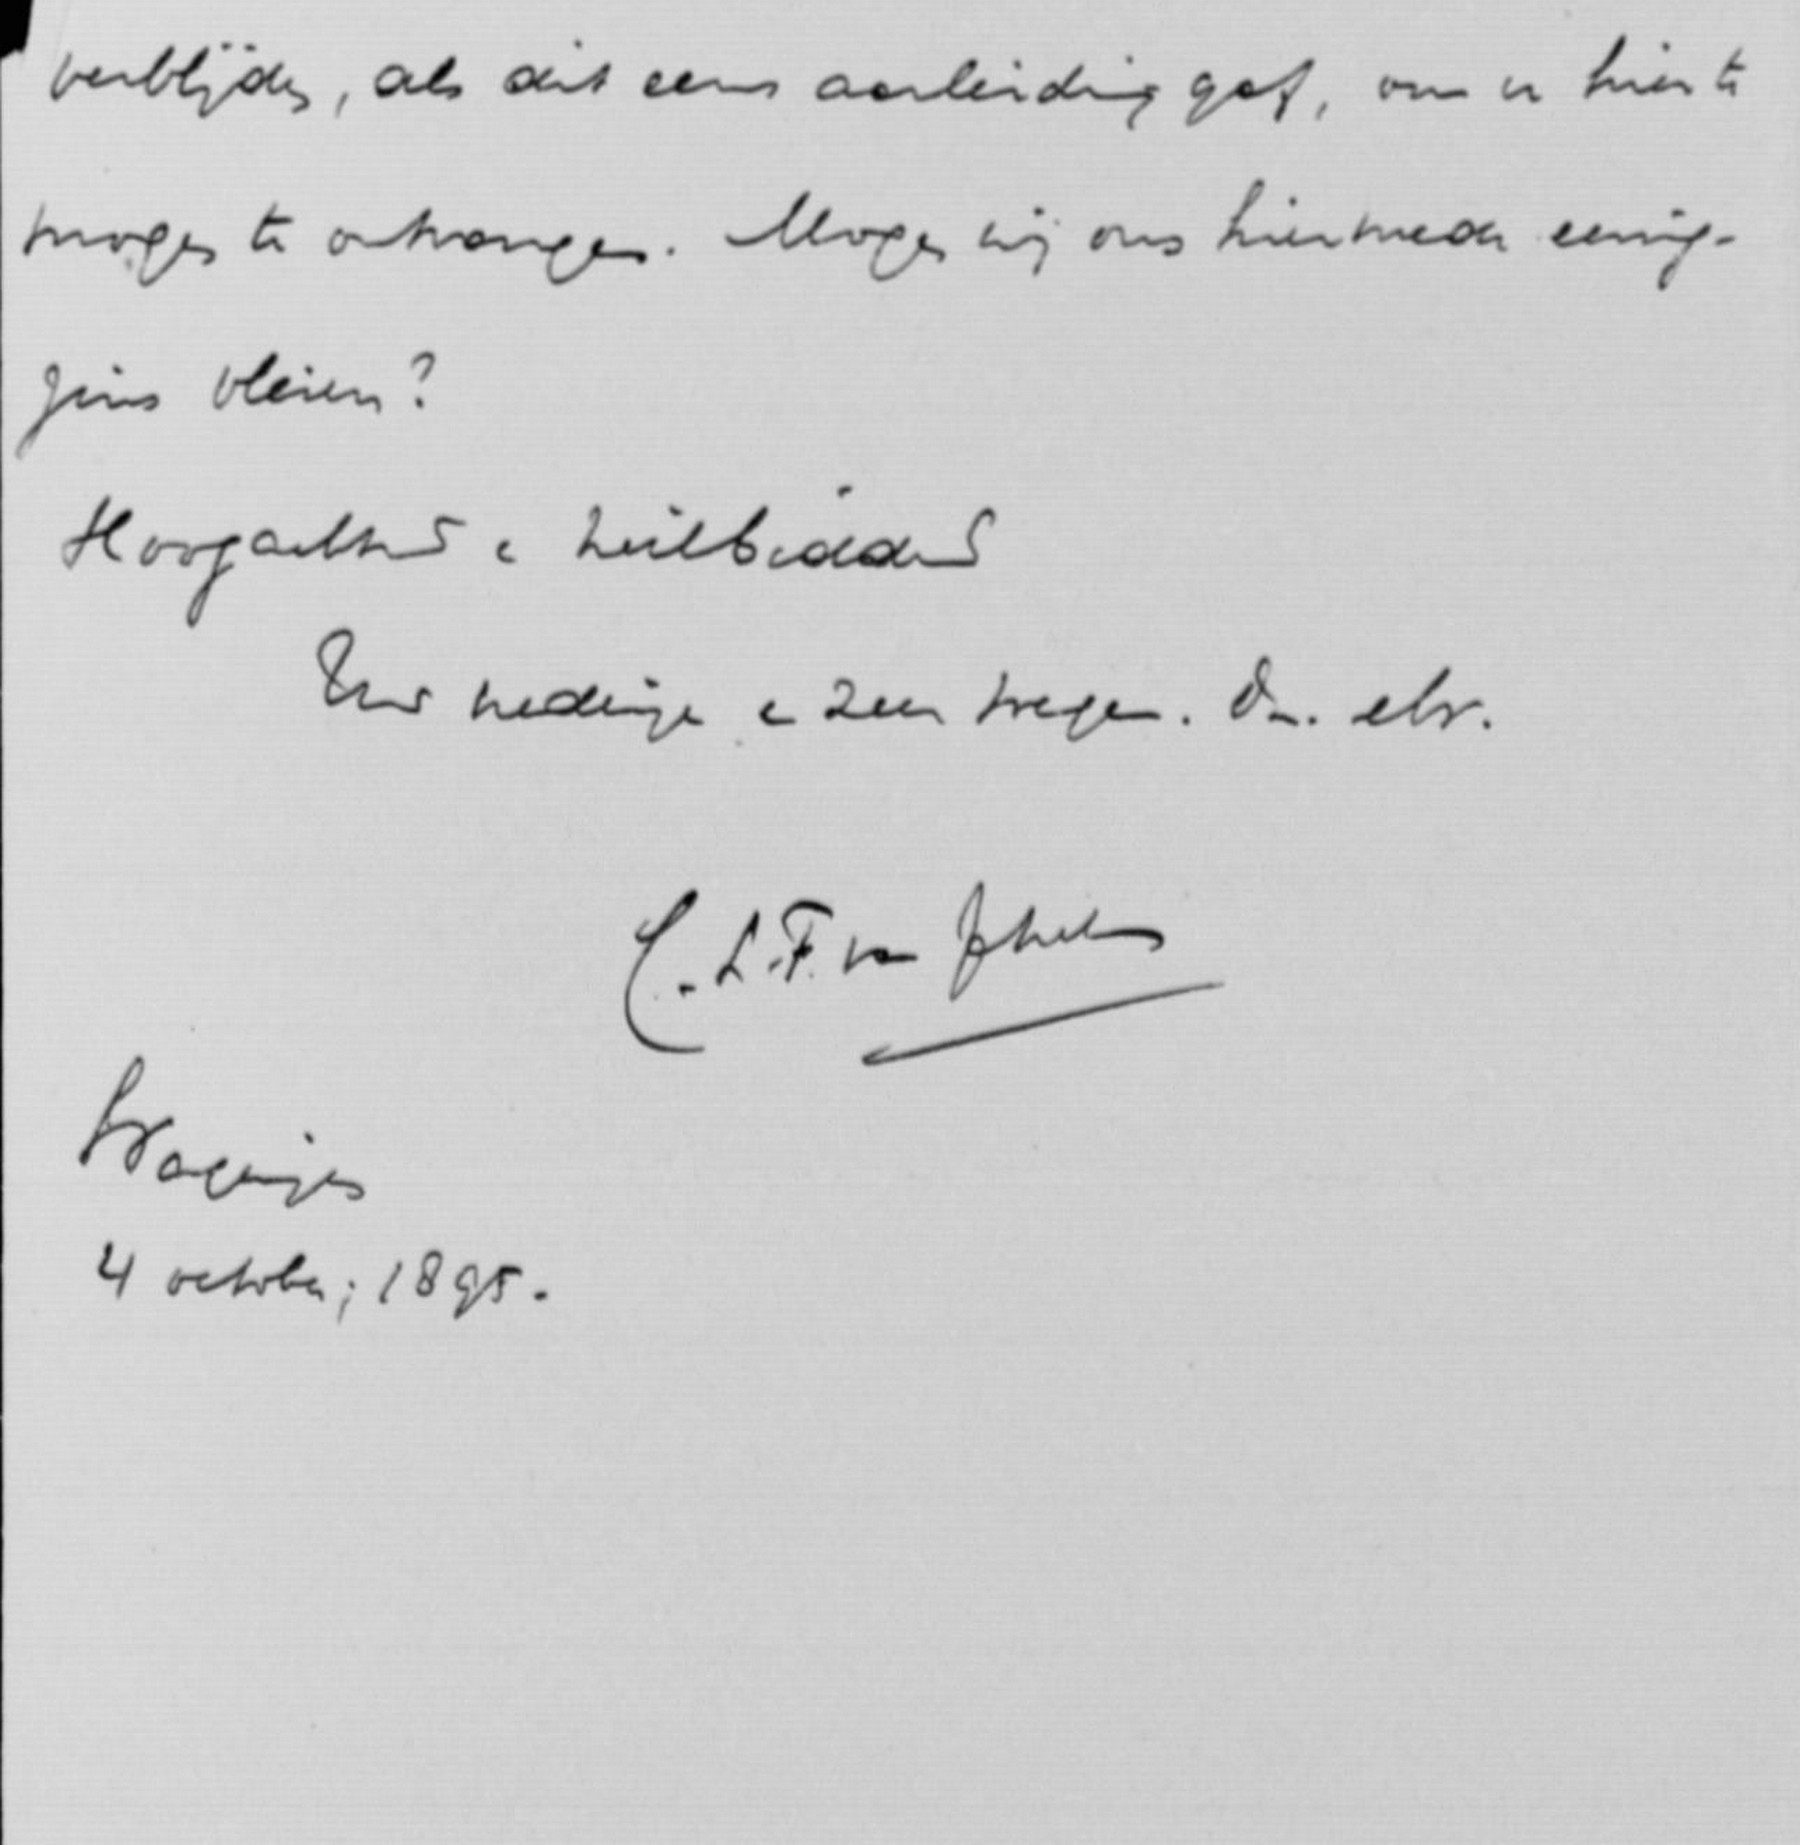 verblijden, als dit eens aanleiding gaf, om u hier te
mogen te ontvangen. Mogen wij ons hiermede eenig-
zins vleien?
Hoogachtend en heilbiddend
Uw nederige en zeer toegen. Dr. etv.
C. L. F. van
Wageningen
4 october, 1895.